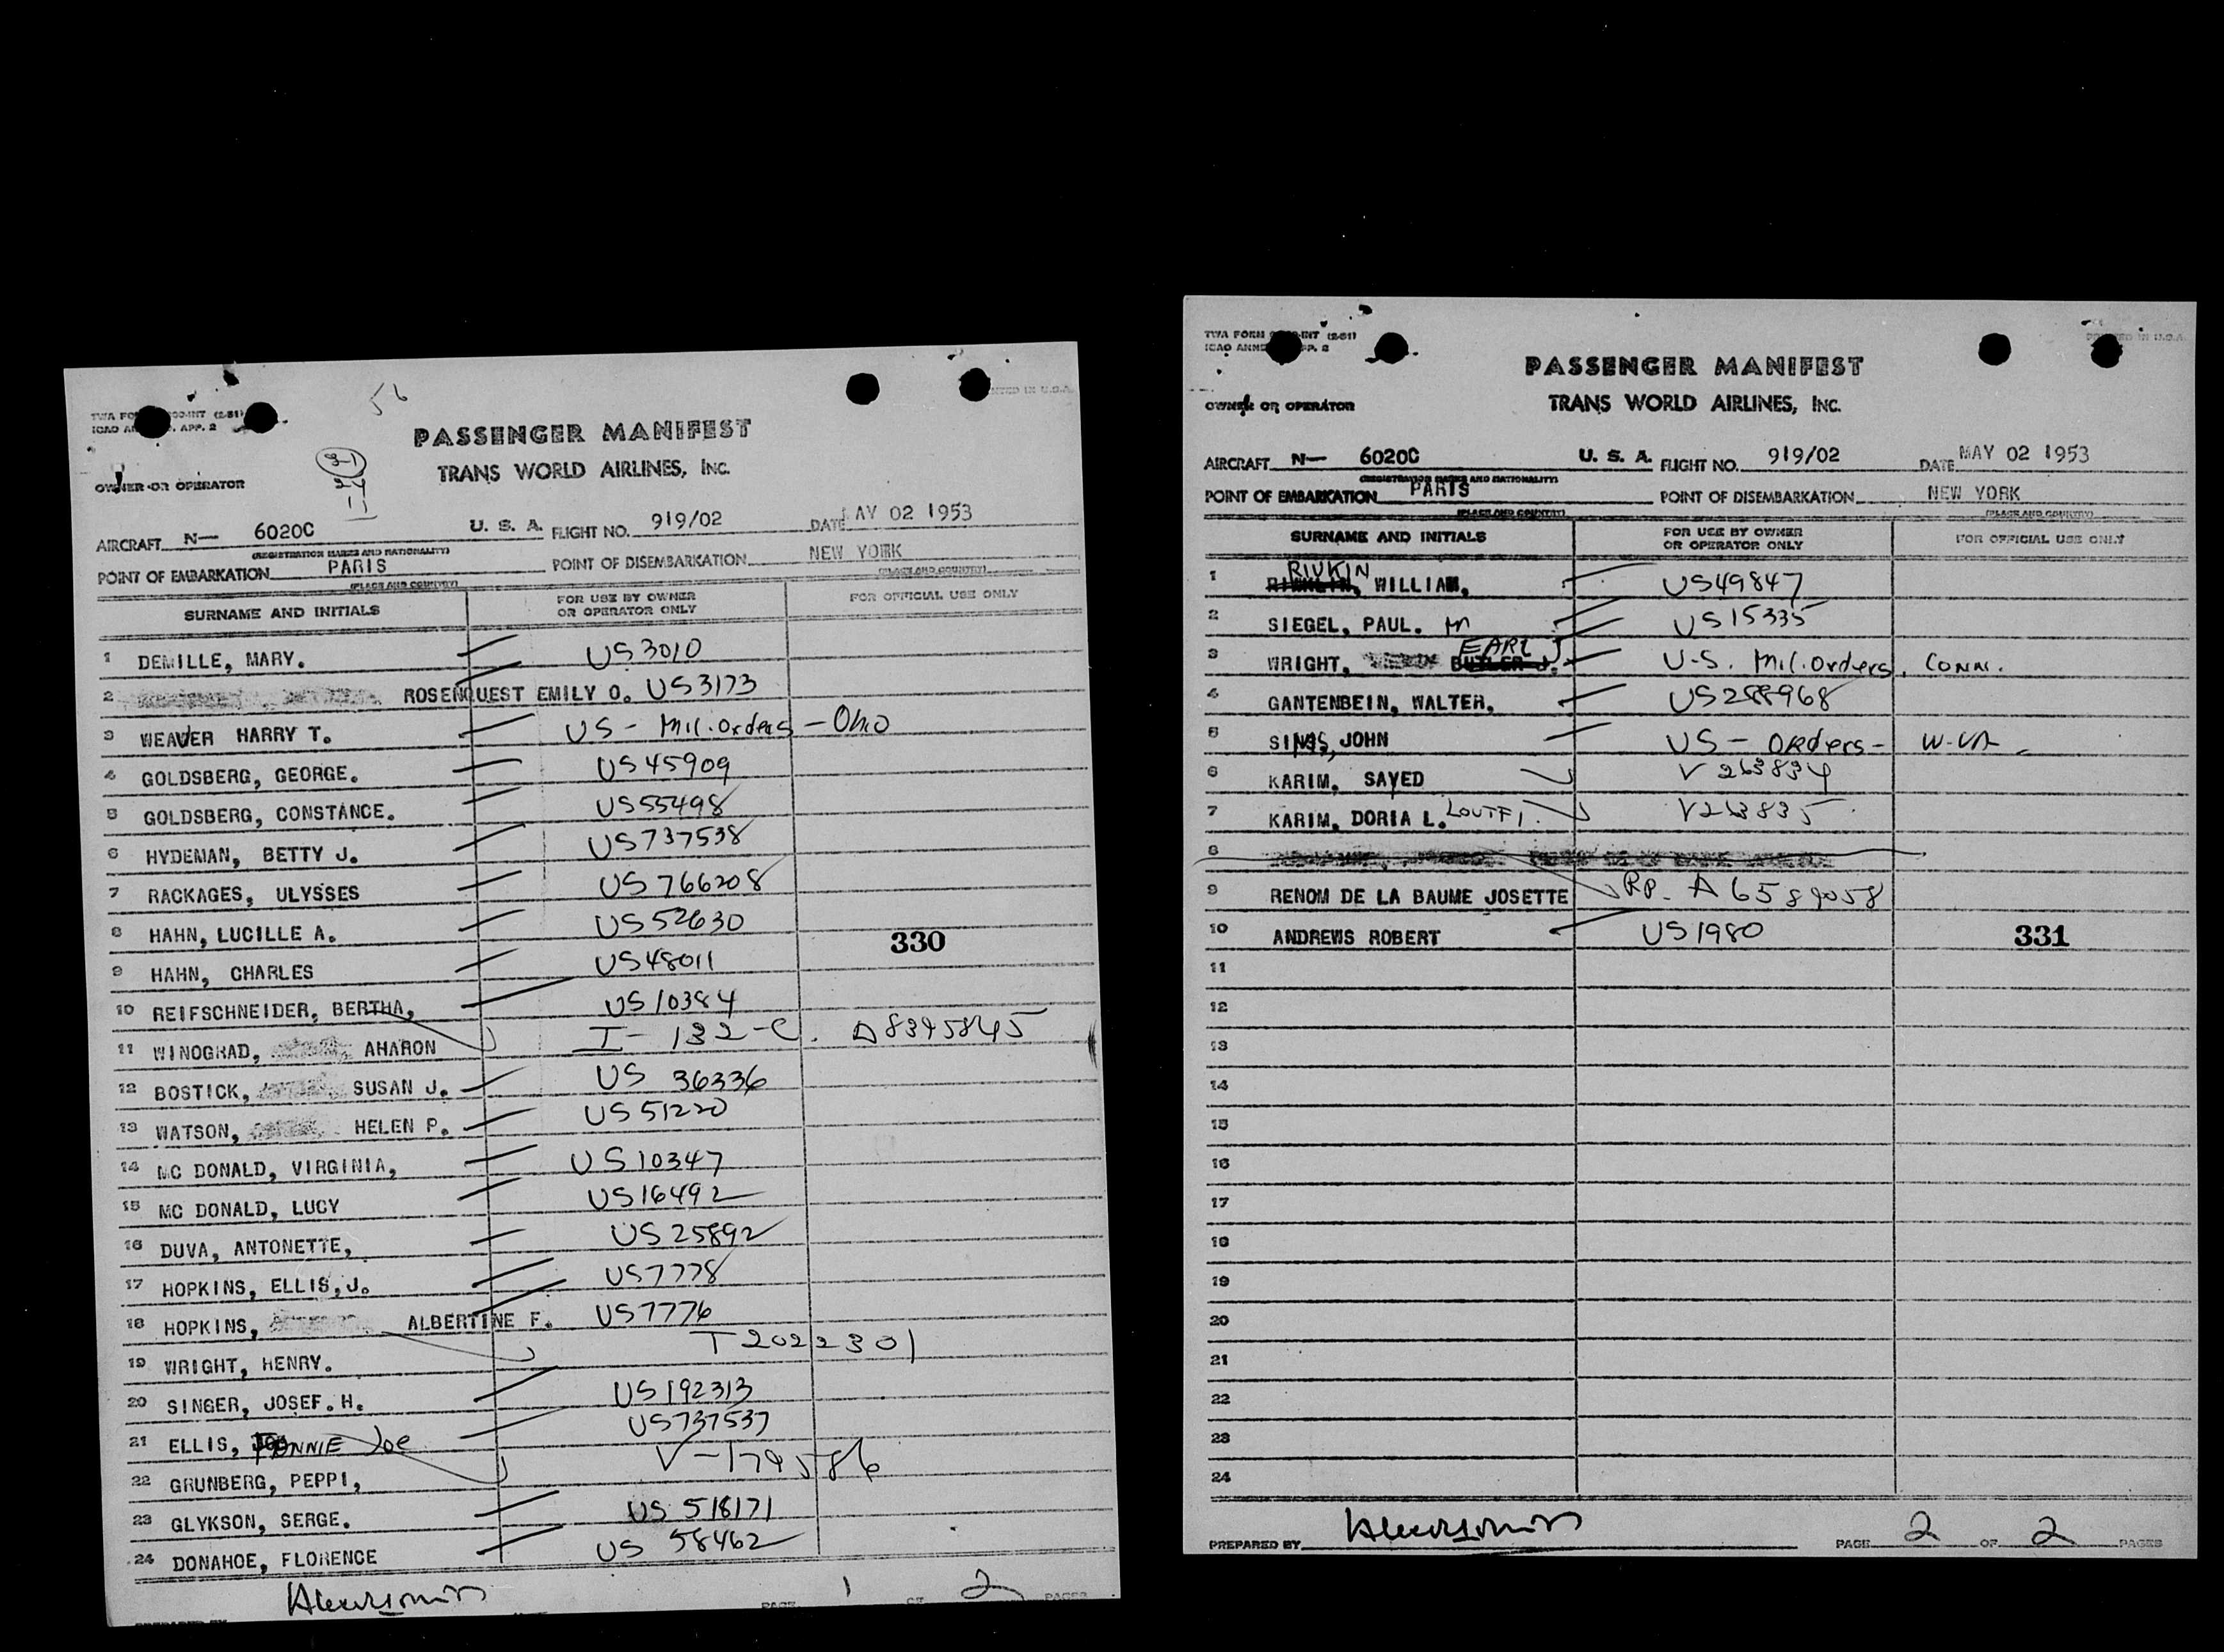 56
PASSENGER MANIFEST
TRANS WORLD AIRLINES, INC.
OWNER OR OPERATOR
AIRCRAFT N— 6020C U. S. A. FLIGHT NO. 919/02 DATE AY 02 1953
(REGISTRATION MARKS AND NATIONALITY)
POINT OF EMBARKATION PARIS POINT OF DISEMBARKATION NEW YORK
(PLACE AND COUNTRY) (PLACE AND COUNTRY)
SURNAME AND INITIALS FOR USE BY OWNER OR OPERATOR ONLY FOR OFFICIAL USE ONLY
1 DEMILLE, MARY. US3010
2 ROSENQUEST EMILY O. US3173
3 WEAVER HARRY T. US - Mil. Orders - Ohio
4 GOLDSBERG, GEORGE. US45909
5 GOLDSBERG, CONSTANCE. US55498
6 HYDEMAN, BETTY J. US737538
7 RACKAGES, ULYSSES US766208
8 HAHN, LUCILLE A. US52630
330
9 HAHN, CHARLES US48011
10 REIFSCHNEIDER, BERTHA, US10384
11 WINOGRAD, AHARON I-132-C. A8395845
12 BOSTICK, SUSAN J. US 36336
13 WATSON, HELEN P. US51220
14 MC DONALD, VIRGINIA, US10347
15 MC DONALD, LUCY US16492
16 DUVA, ANTONETTE, US25892
17 HOPKINS, ELLIS,J. US7778
18 HOPKINS, ALBERTINE F. US7776
19 WRIGHT, HENRY. T2022301
20 SINGER, JOSEF.H. US192313
21 ELLIS, FANNIE Joe US737537
22 GRUNBERG, PEPPI, V-179586
23 GLYKSON, SERGE. US 518171
24 DONAHOE, FLORENCE US 58462
PAGE 1 OF 2 PAGES
PASSENGER MANIFEST
OWNER OR OPERATOR TRANS WORLD AIRLINES, INC.
AIRCRAFT N— 6020C U. S. A. FLIGHT NO. 919/02 DATE MAY 02 1953
(REGISTRATION MARKS AND NATIONALITY)
POINT OF EMBARKATION PARIS POINT OF DISEMBARKATION NEW YORK
(PLACE AND COUNTRY) (PLACE AND COUNTRY)
SURNAME AND INITIALS FOR USE BY OWNER OR OPERATOR ONLY FOR OFFICIAL USE ONLY
1 RIVKIN WILLIAM. US49847
2 SIEGEL, PAUL. M US15335
3 WRIGHT, EARL J U.S. Mil. Orders, CONN.
4 GANTENBEIN, WALTER. US288968
5 SIMS, JOHN US - ORders - W-VA -
6 KARIM, SAYED V 263834
7 KARIM, DORIA L. LOUTFI. V263835
8
9 RENOM DE LA BAUME JOSETTE RP. A 6589058
10 ANDREWS ROBERT US1980 331
11
12
13
14
15
16
17
18
19
20
21
22
23
24
PREPARED BY PAGE 2 OF 2 PAGES